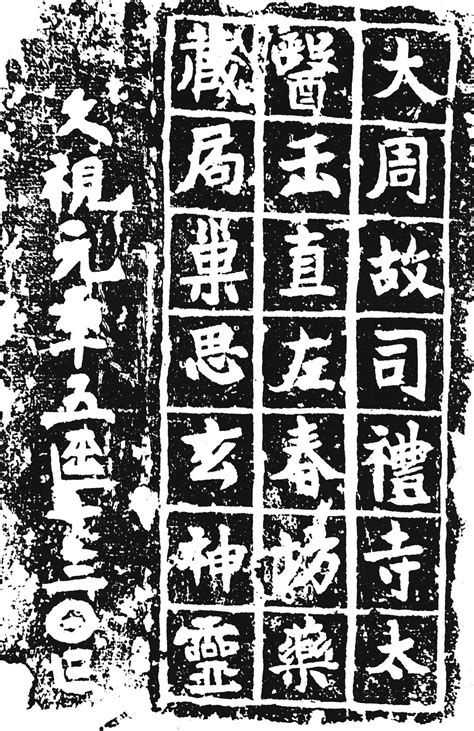 大周故司禮寺太
醫壬直左春坊藥
藏局巢思玄神靈
久視元年五𠥱〇